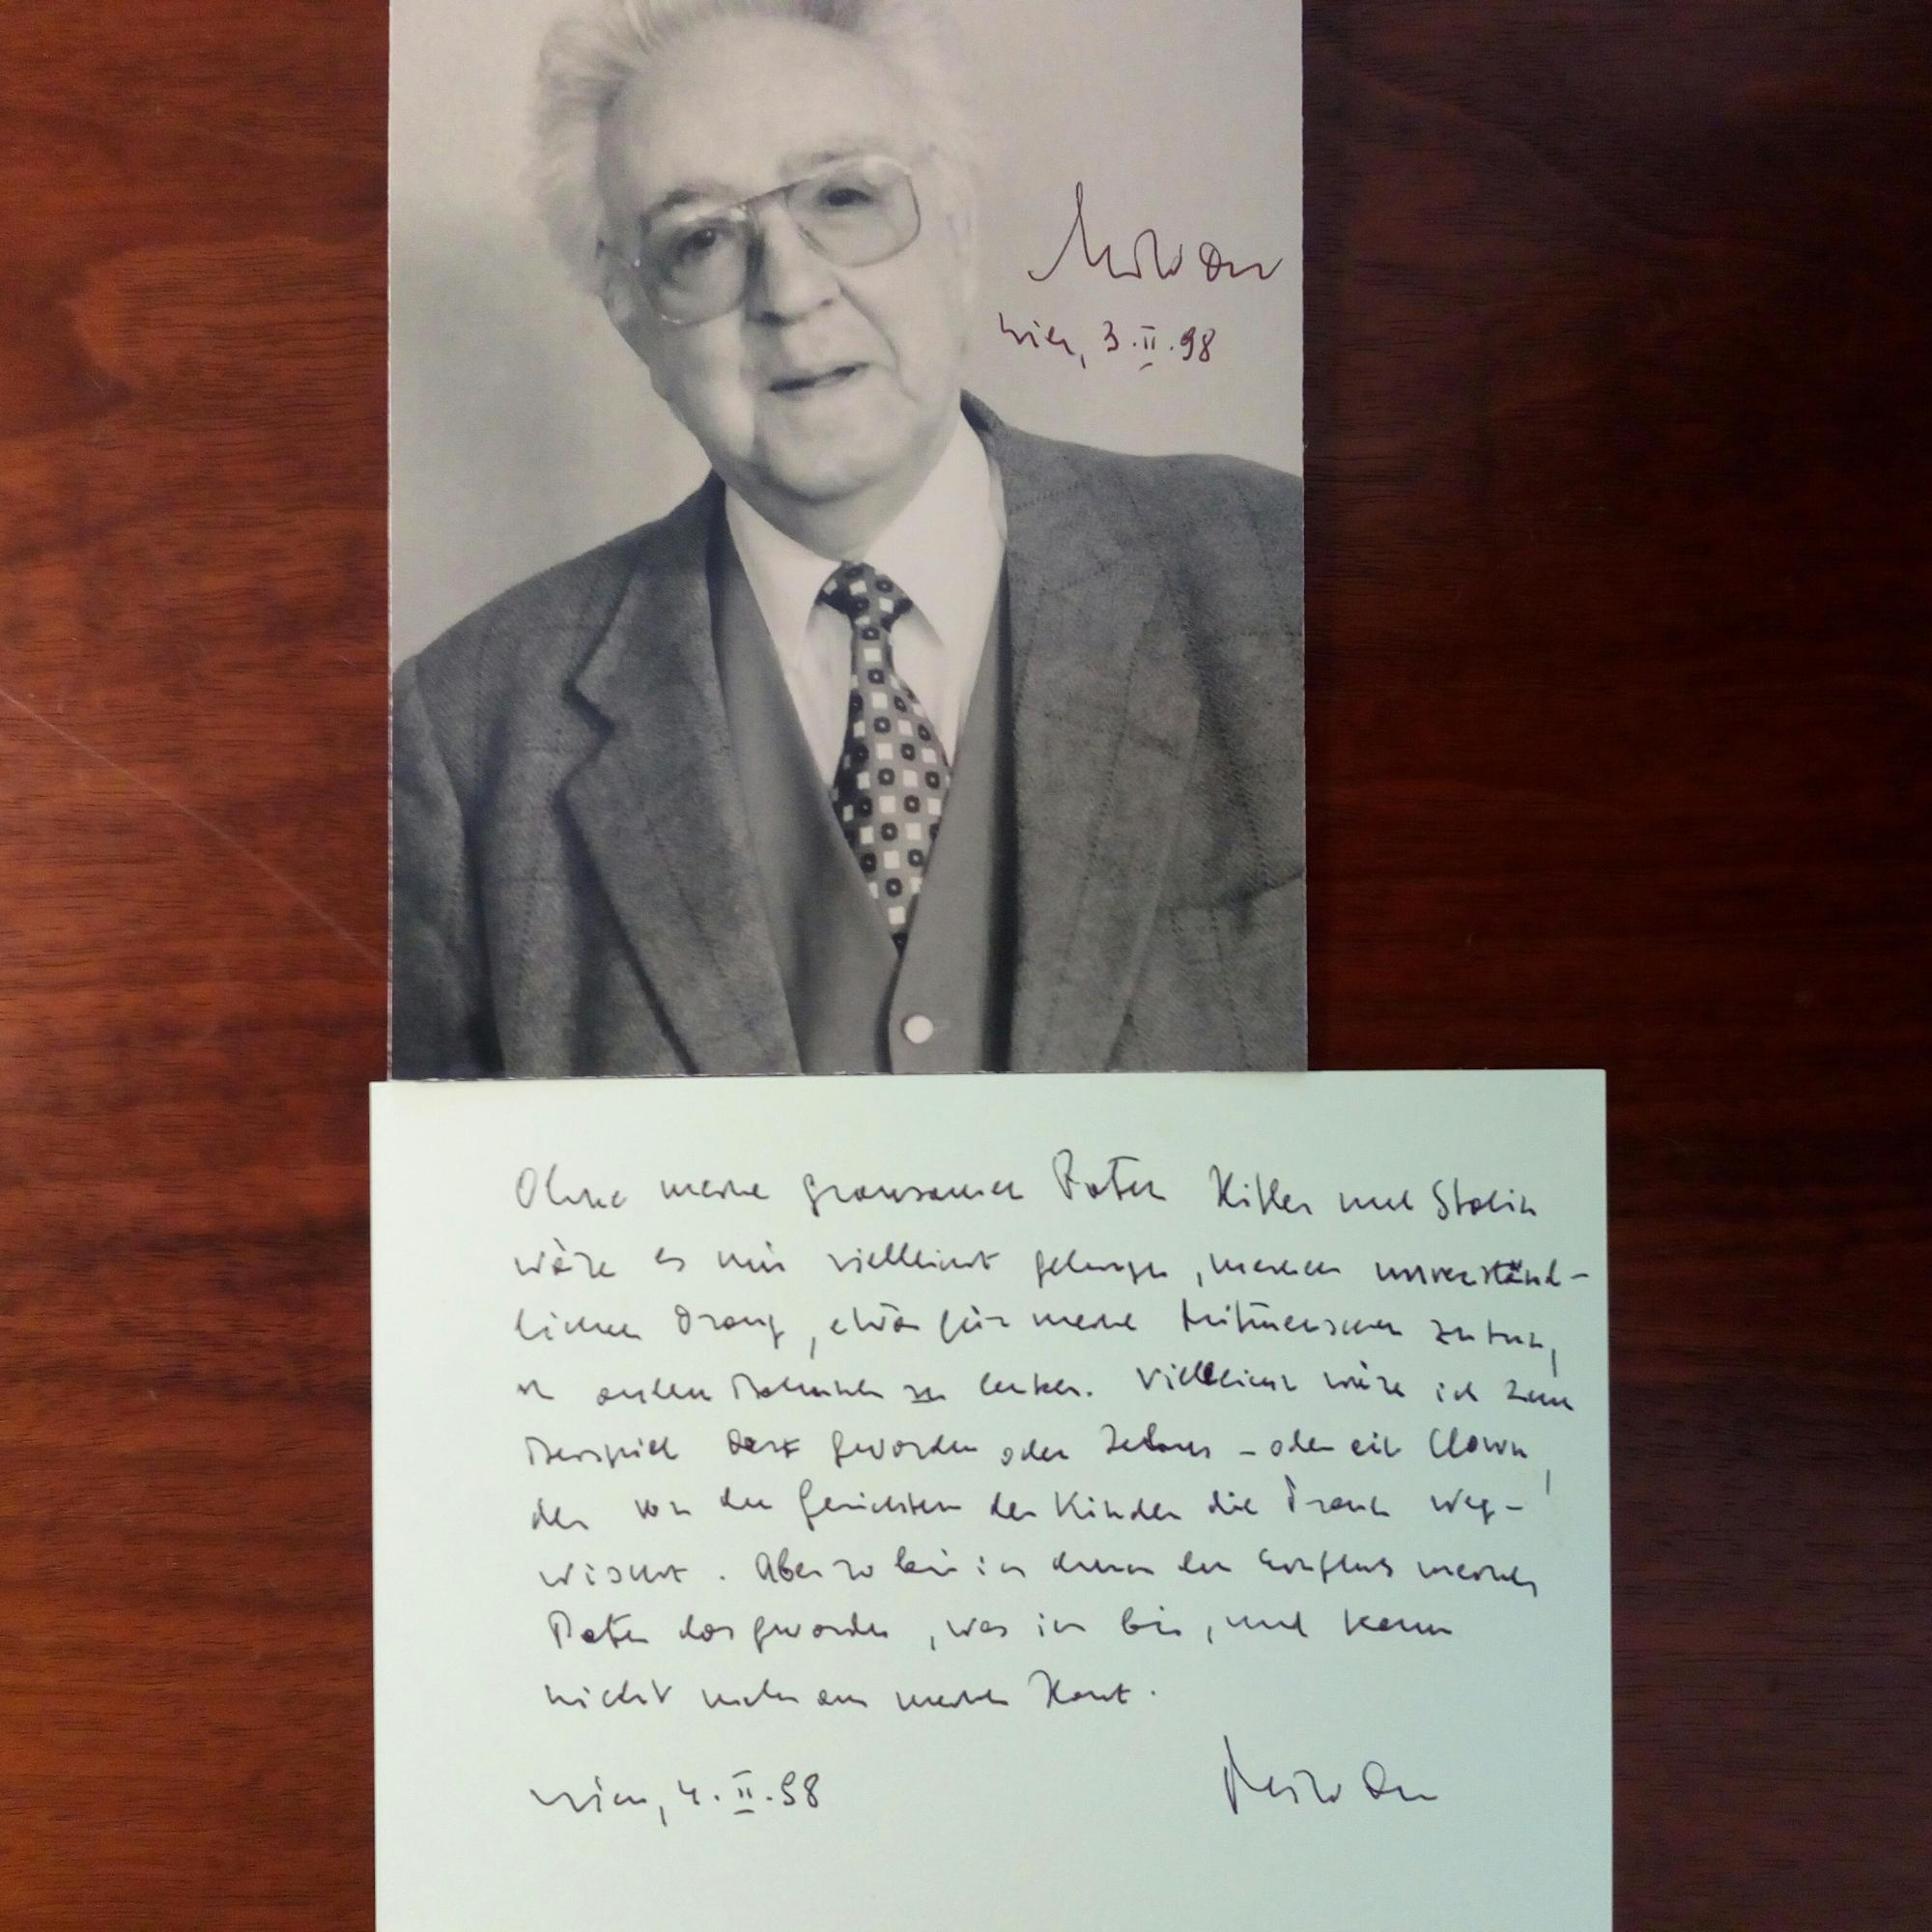 Wien, 3.II.98
Ohne meine grausamen Paten Hitler und Stalin
wäre es mir vielleicht gelungen, meinen unverständ-
lichen Drang, etwas für meine Mitmenschen zu tun,
in andere Bahnen zu lenken. Vielleicht wäre ich zum
Beispiel Arzt geworden oder - oder ein Clown,
der von den Gesichtern der Kinder die Tränen weg-
wischt. Aber so bin ich durch den Einfluss meiner
Paten das geworden, was ich bin, und kann
nicht mehr aus meiner Haut.
Wien, 4.II.98